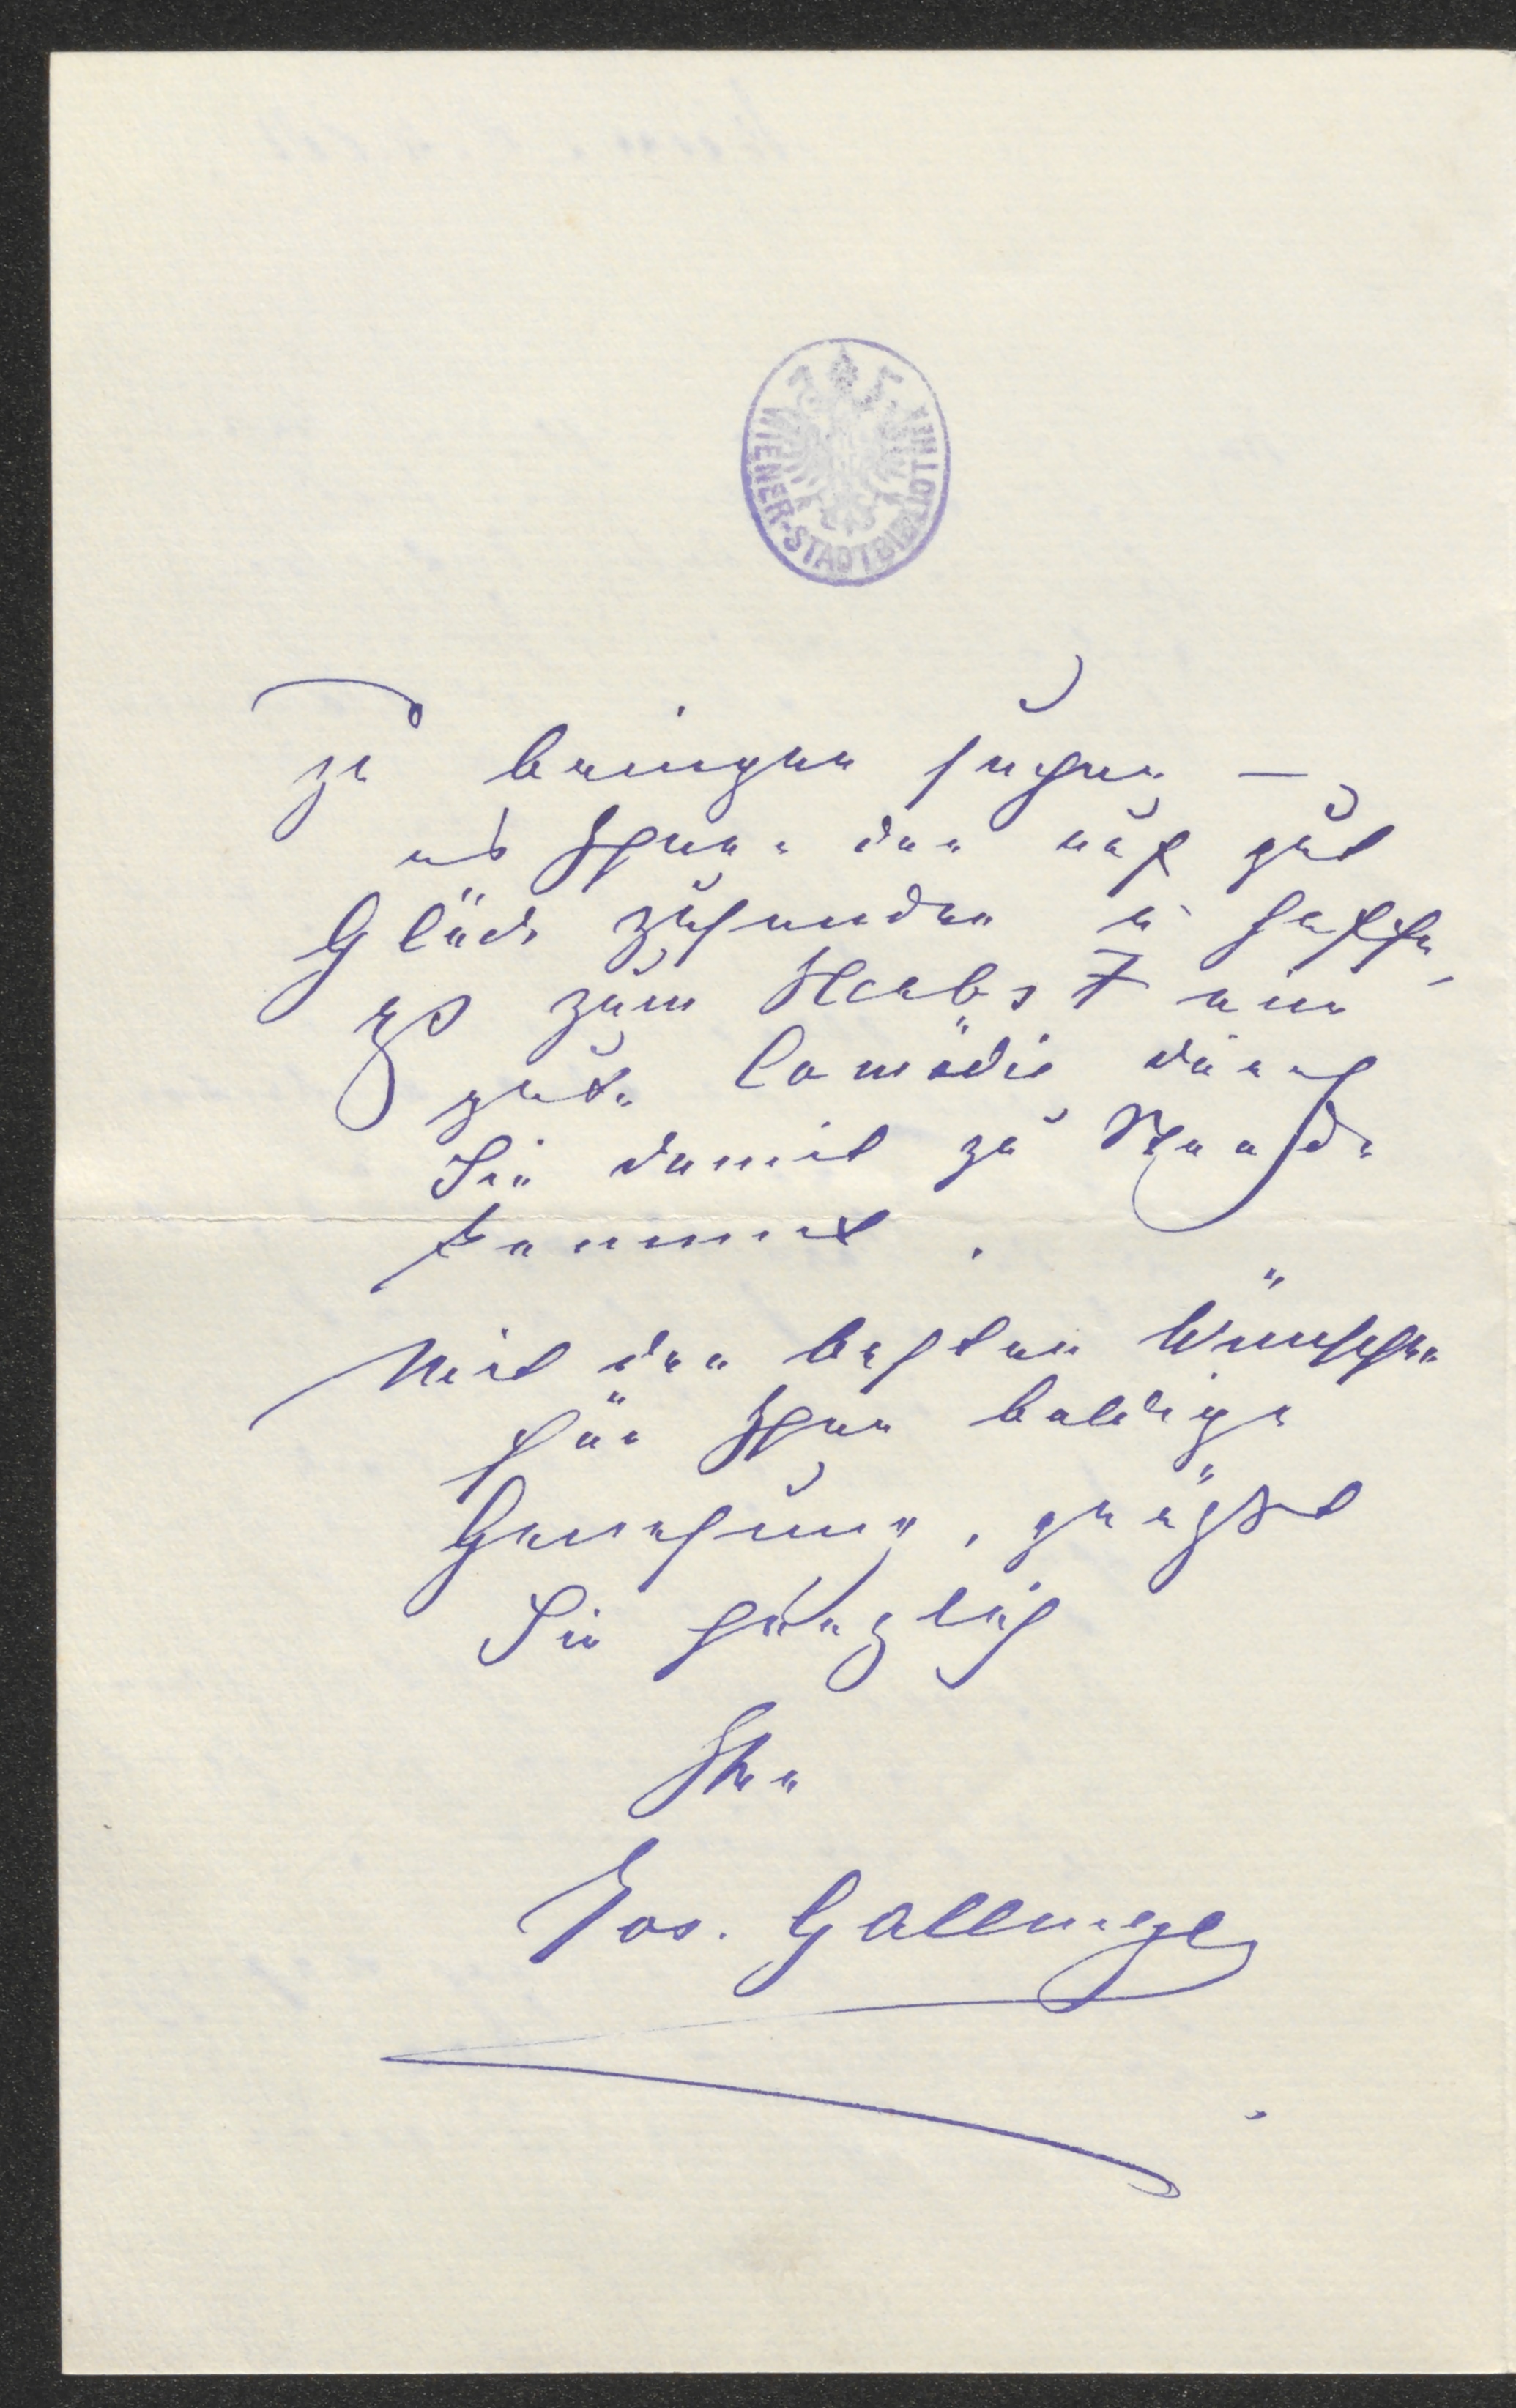 WIENER-STADTBIBLIOTHEK
zu bringen suchen —
es Ihnen dann auf gut
Glück zusenden u hoffe,
zum Herbst eine
gute Comödie durch
Sie damit zu Stande
kommt.
Mit den besten Wünschen
für Ihre baldige
Genesung, grüßt
Sie herzlich
Ihre
Jos. Gallmeyer